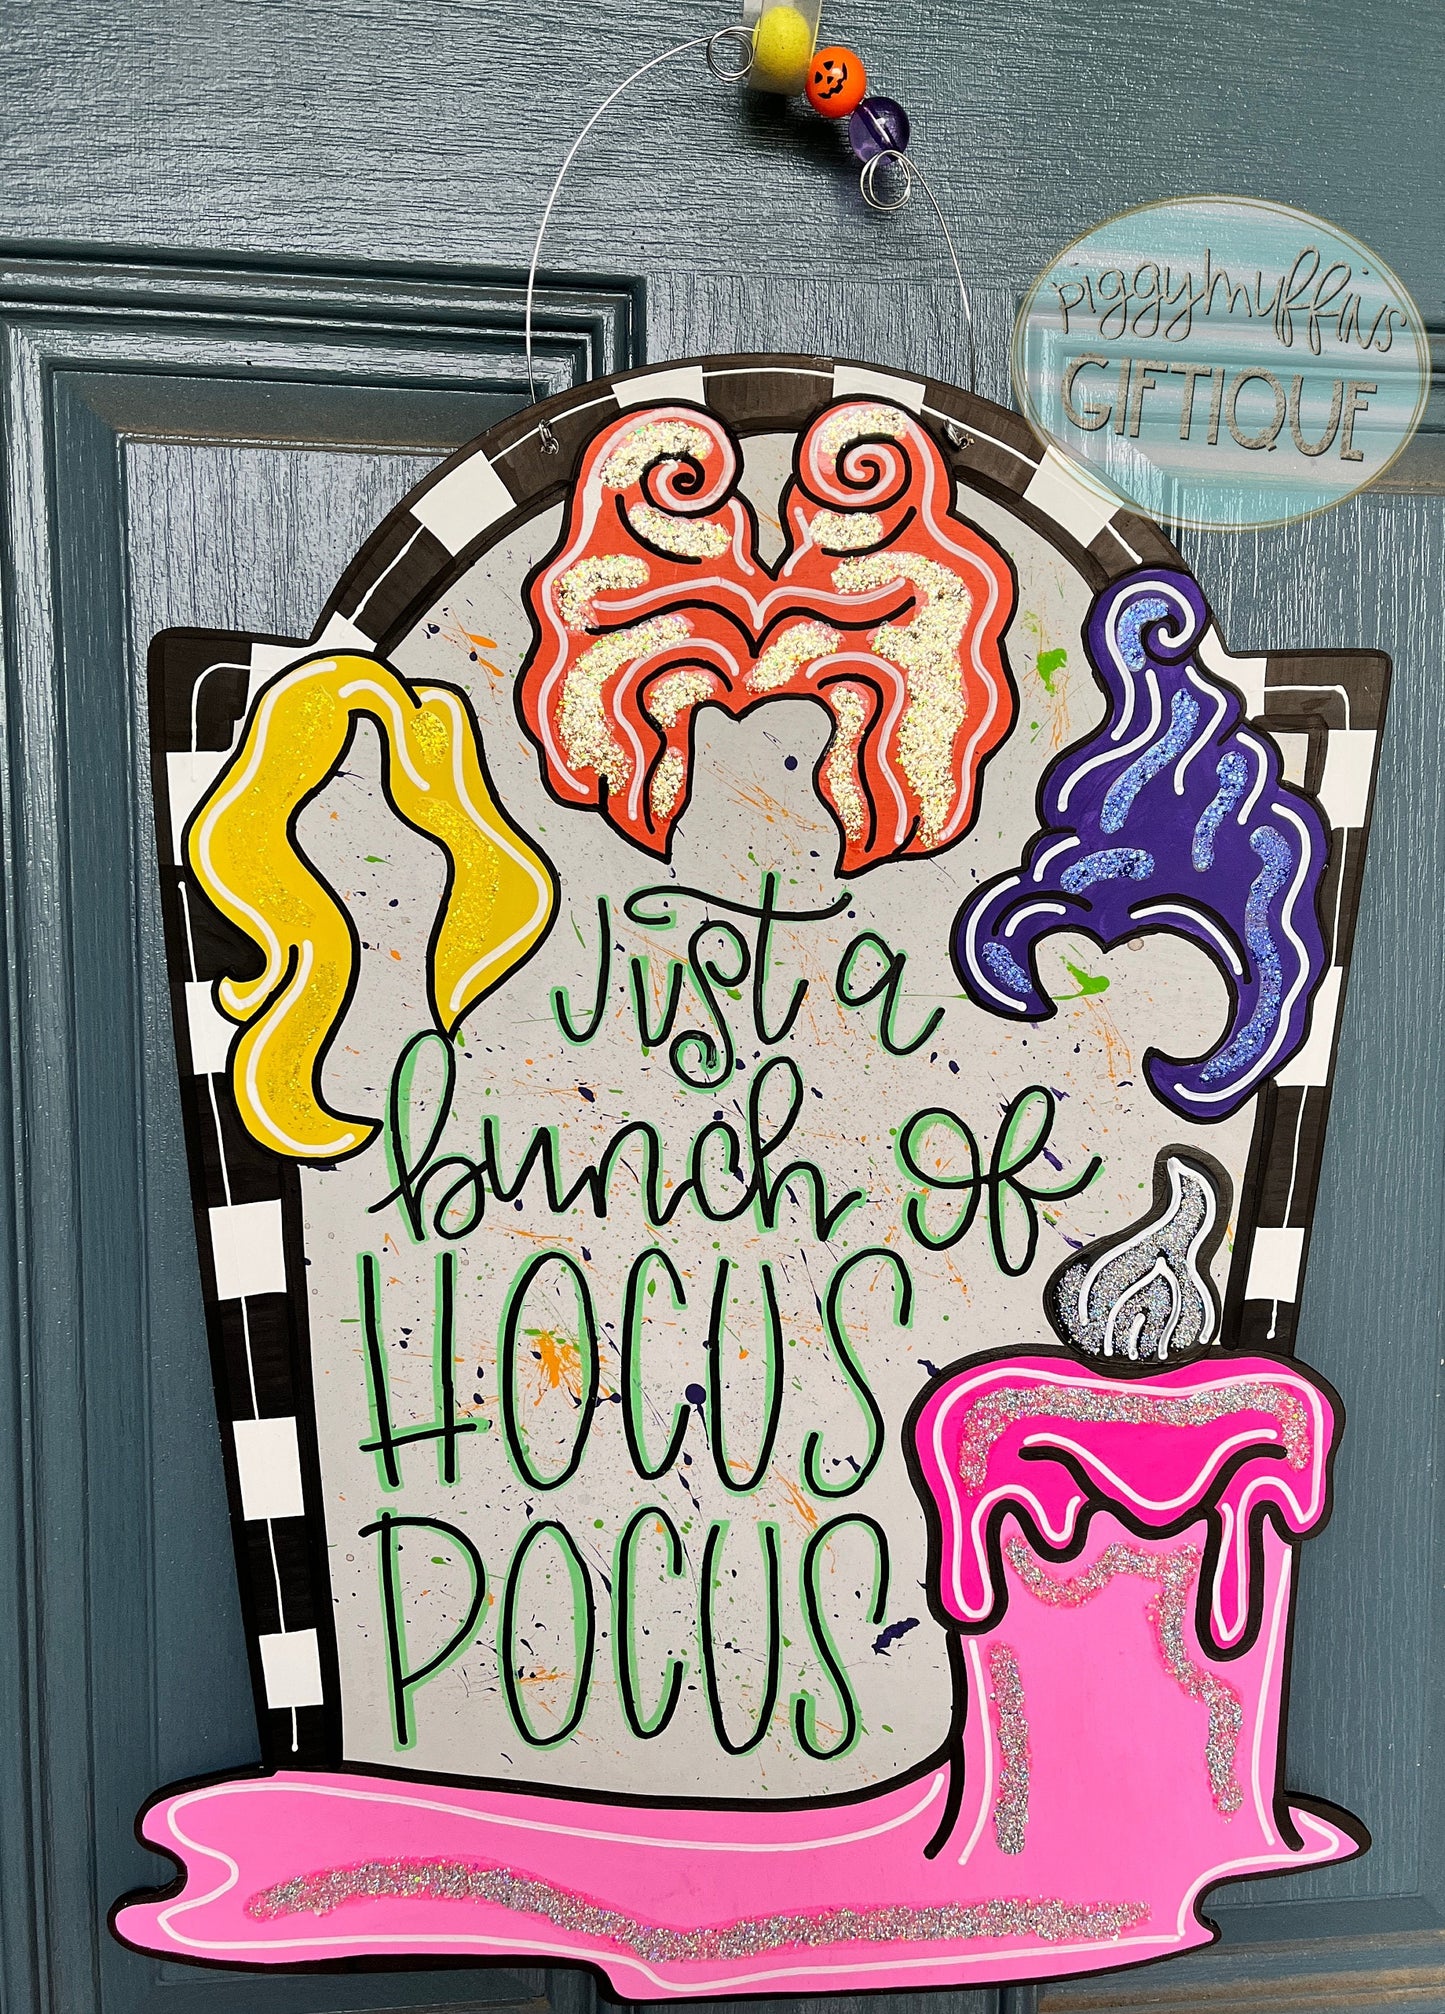 piggymuffins
GIFTIQUE
Just a
bunch of
HOCUS
POCUS